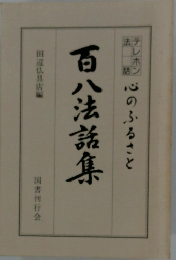 テレホン法話
心のふるさと
百八法話集
国書刊行会